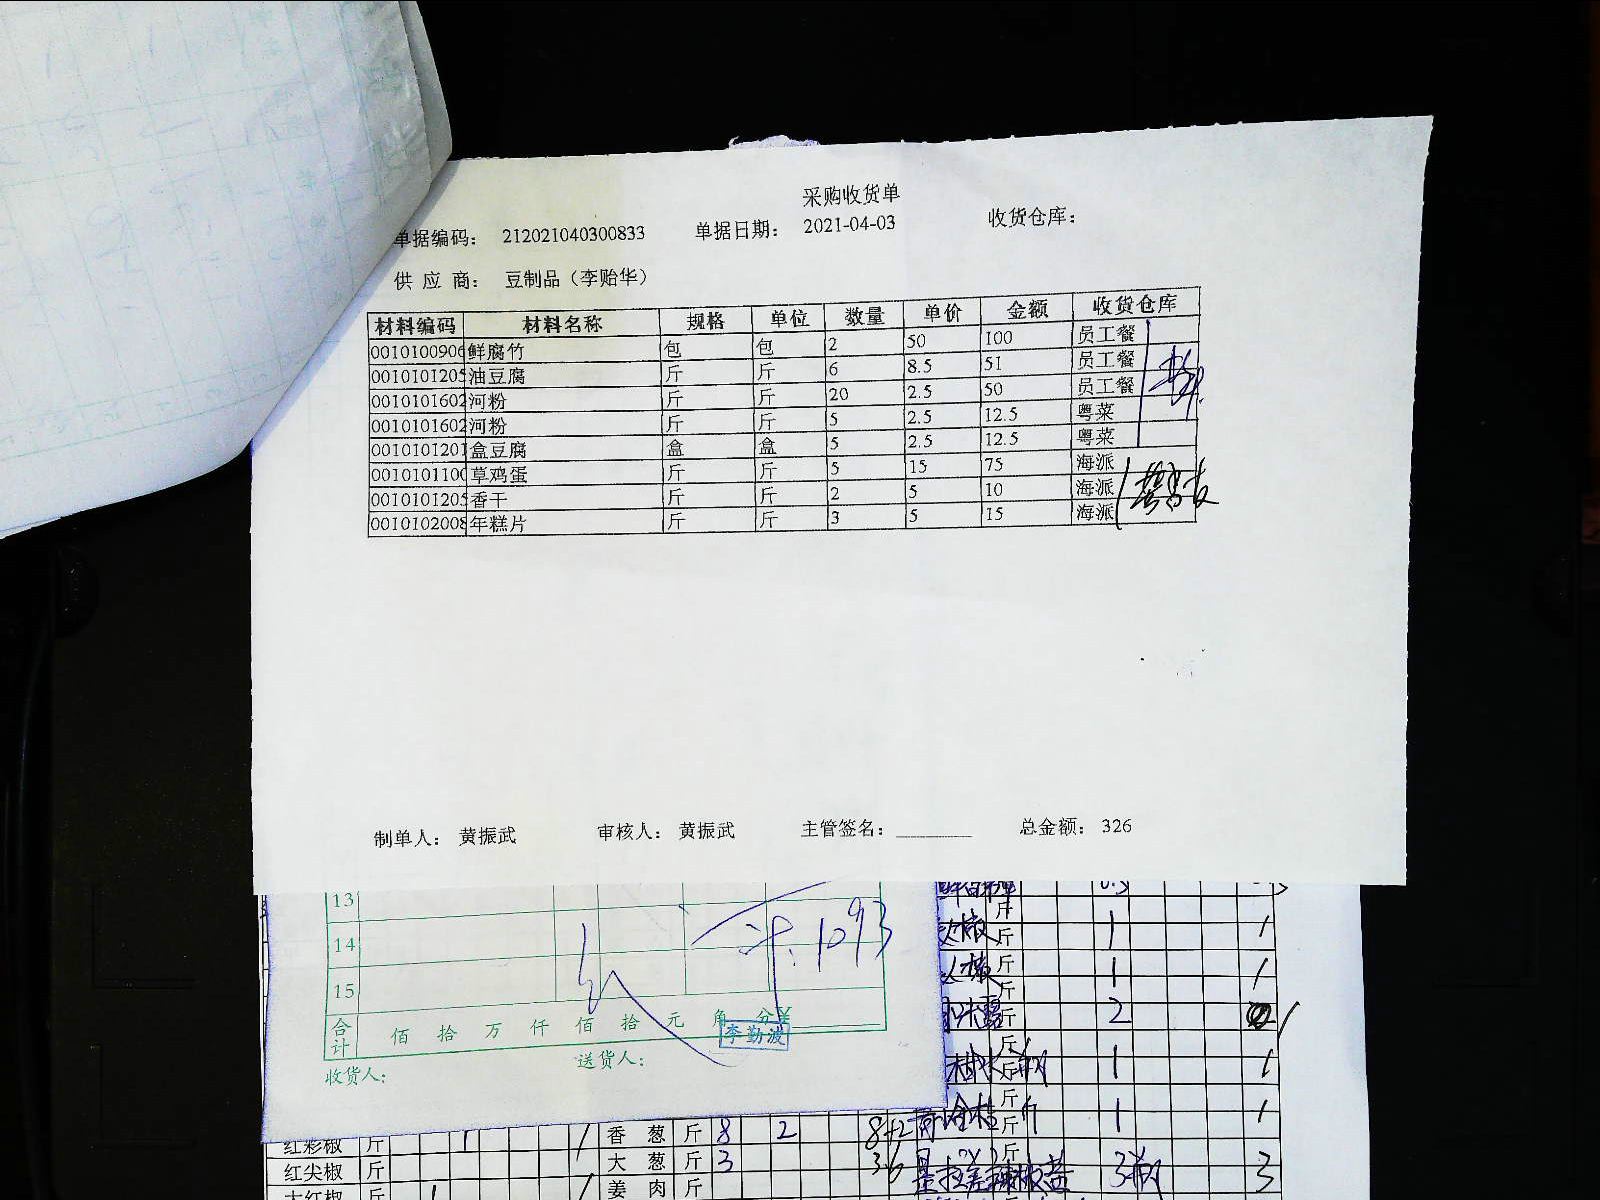 采购收货单
单据编码： 212021040300833 单据日期： 2021-04-03 收货仓库：
供 应 商： 豆制品（李贻华）
材料编码 材料名称 规格 单位 数量 单价 金额 收货仓库
0010100906 鲜腐竹 包 包 2 50 100 员工餐
0010101205 油豆腐 斤 斤 6 8.5 51 员工餐
0010101602 河粉 斤 斤 20 2.5 50 员工餐
0010101602 河粉 斤 斤 5 2.5 12.5 粤菜
001010120 盒豆腐 盒 盒 5 2.5 12.5 粤菜
001010110 草鸡蛋 斤 斤 5 15 75 海派
0010101205 香干 斤 斤 2 5 10 海派
0010102008 年糕片 斤 斤 3 5 15 海派
制单人： 黄振武 审核人： 黄振武 主管签名： 总金额： 326
13
14 1093
15
合计 佰 拾 万 仟 佰 拾 元 角 分 ¥
李勤波
收货人： 送货人：
斤 1 1
斤 1 1
斤 2
斤 1 1
斤 1 1
红彩椒 斤 1 香 葱 斤 8 2 8+2
红尖椒 斤 大 葱 斤 3 3
大红椒 斤 1 姜 肉 斤